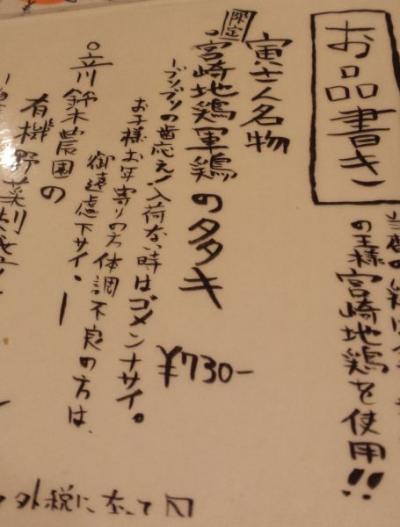 お品書き
の王様宮崎地鶏を使用!!
寅士人名物
限定
宮崎地鶏軍鶏のタタキ
ブリブリの歯応え!入荷ない時はゴメンナサイ。
お子様お年寄りの方体調不良の方は、
御遠慮下サイ。
¥730-
立川鈴木農園の
有機野菜
外税に